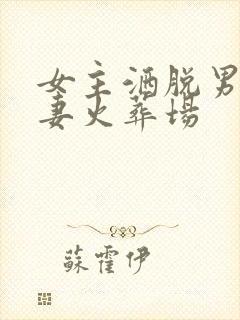 女主洒脱男
妻火葬场
蘇霍伊